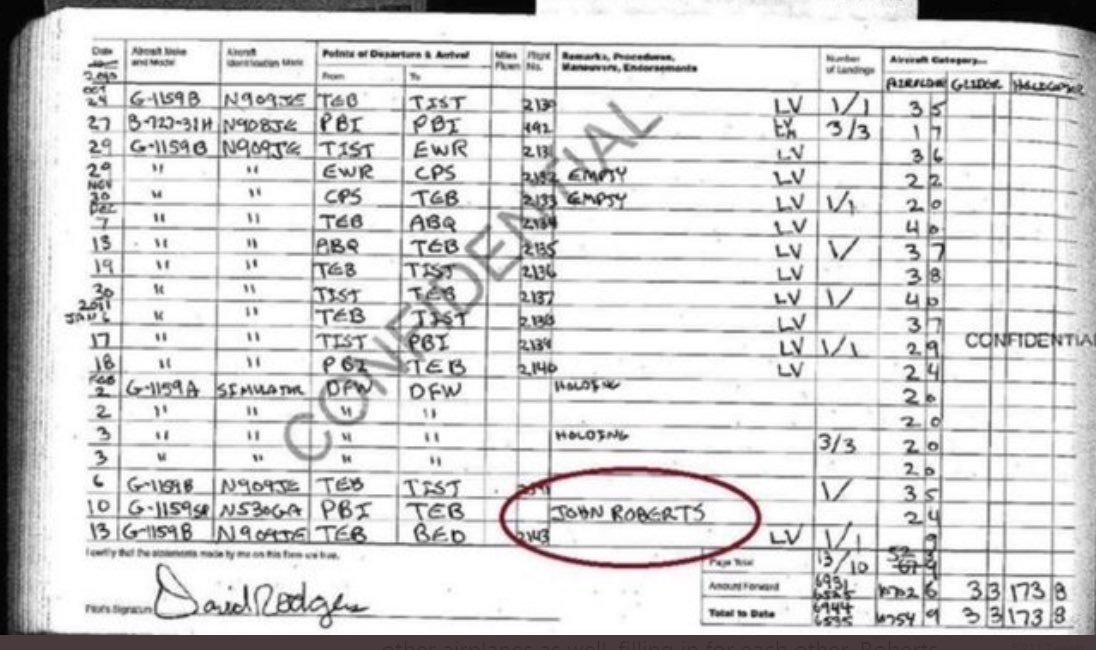 Date Aircraft Make and Model Aircraft Identification Mark Points of Departure & Arrival Miles Flown Flight No. Remarks, Procedures, Maneuvers, Endorsements Number of Landings Aircraft Category...
From To AIRPLANE GLIDER
OCT 24 G-1159B N909JE TEB TIST 2130 LV 1/1 3 5
27 B-727-31H N908JE PBI PBI 492 LV 3/3 1 7
29 G-1159B N909JE TIST EWR 2131 LV 3 6
29 " " EWR CPS 2132 EMPTY LV 2 2
NOV 30 " " CPS TEB 2133 EMPTY LV 1/1 2 0
DEC 7 " " TEB ABQ 2134 LV 4 0
13 " " ABQ TEB 2135 LV 1/ 3 7
19 " " TEB TIST 2136 LV 3 8
30 " " TIST TEB 2137 LV 1/ 4 0
2011 JAN 6 " " TEB TIST 2138 LV 3 7
17 " " TIST PBI 2139 LV 1/1 2 9
CONFIDENTIAL
18 " " PBI TEB 2140 LV 2 4
FEB 2 G-1159A SIMULATOR DFW DFW HOLDING 2 0
2 " " " " 2 0
3 " " " " HOLDING 3/3 2 0
3 " " " " 2 0
6 G-1159B N909JE TEB TIST 1/ 3 5
10 N530GA PBI TEB JOHN ROBERTS 2 4
13 G-1159B N909JE TEB BED 2143 LV 1/1 9
CONFIDENTIAL
I certify that the statements made by me on this form are true.
Page Total 13/10
Amount Forward 6931 6 3 3 173 8
Pilot's Signature David Rodgers
Total to Date 6944 9 3 3 173 8
other airplanes as well, filling in for each other. Roberts